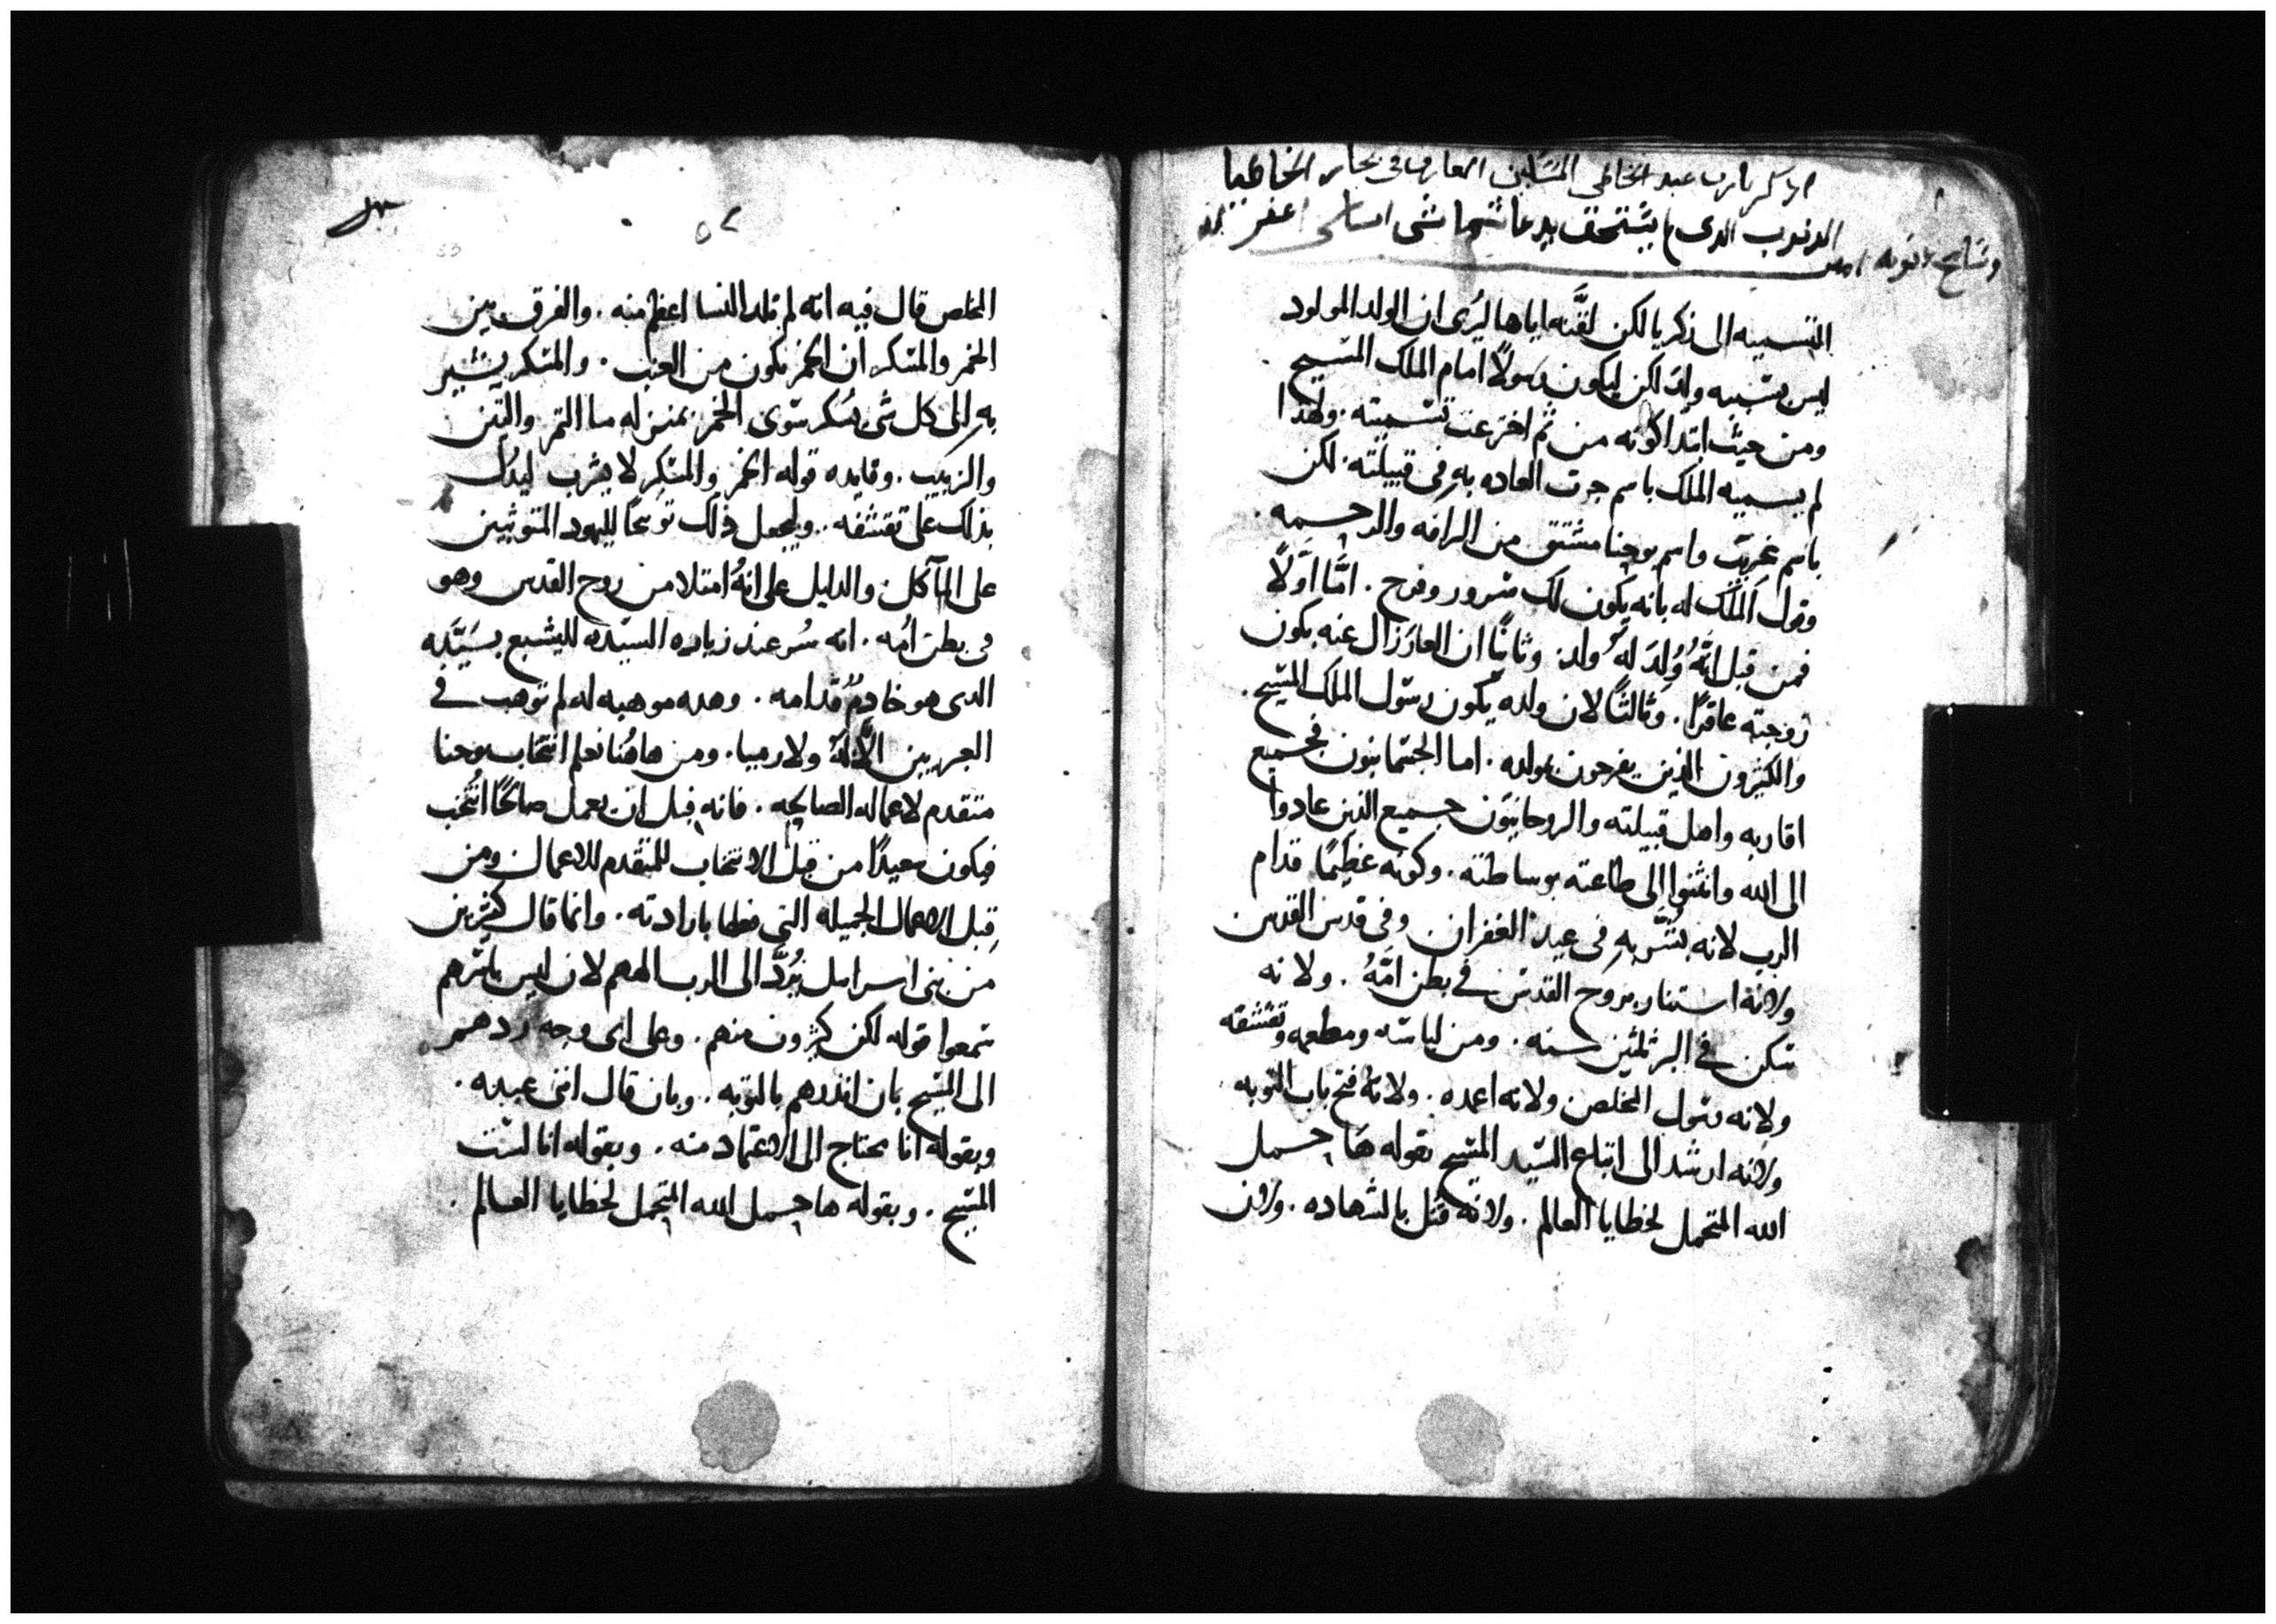 اذكر يا رب عبد الخاطي المسكين الغارق في بحار الخطايا
الدنوب الدي لا يستحق يدعا شماس اغفر له
وسامح امين
التسميه الى زكريا لكن لقَّنه اياها ليُرى ان الولد المولود
ليس يشبيه ولد لكن ليكون رسولاً امام الملك المسيح
ومن حيث ابتدا كونه من ثم اخترعت تسميته. ولهدا
لم يسميه الملك باسم جرت العاده به في قبيلته. لكن
باسم غريب واسم يوحنا مشتق من الرافه والرحمه.
وقول الملك له بانه يكون لك سرور وفرح. امَّا اوَّلاً
فمن قبل انَّهُ وُلِدَ لهُ ولد. وثانيًا ان العار زال عنه بكون
زوجته عاقرًا. وثالثًا لان ولده يكون رسول الملك المسيح.
والكثيرون الذين يفرحون بمولده. اما الجسمانيون فجميع
اقاربه واهل قبيلته والروحانيون جميع الذين عادوا
الى الله وانثنوا الى طاعته بوساطته. وكونه عظيمًا قدام
الرب لانه بُشّر به في عيد الغفران وفي قدس القدس
ولانه استنار بروح القدس في بطن امّهُ. ولانه
سكن في البر ثلثين سنه. ومن لباسه ومطعمه وتقشفه
ولانه رسول المخلص ولانه اعمده. ولانه فتح باب التوبه
ولانه ارشد الى اتباع السيد المسيح بقوله ها حمل
الله المتحمل لخطايا العالم. ولانه قتل بالشهاده. ولان
٥٢
المخلص قال فيه انه لم تلد النسا اعظم منه. والفرق بين
الخمر والمسكر ان الخمر يكون من العنب. والمسكر يشير
به الى كل شي يسكر سوى الخمر بمنزله ما التمر والتين
والزبيب. وفايده قوله الخمر والمسكر لا يشرب ليدل
بذلك على تقشفه. وليجعل ذلك توبيخًا لليهود المتوثبين
على المآكل والدليل على انهُ امتلا من روح القدس وهو
في بطن امُه. انه سُر عند زياره السيّده لليشبع بسَيّده
الدى هو خادمٌ قدامه. وهده موهبه له لم توهب في
العبريين الا له ولارميا. ومن هاهُنا نعلم انتخاب يوحنا
متقدم لاعماله الصالحه. فانه قبل ان يعمل صالحًا انُتخب
فيكون سعيدًا من قبل الانتخاب المتقدم للاعمال ومن
قِبل الاعمال الجميله التي فعلها بارادته. وانما قال كثيرين
من بنى اسرايل يرُدَّ الى الرب الاههم لان ليس باسرهم
سمعوا قوله لكن كثيرون منهم. وعلى اي وجه ردهم
الى المسيح بان انذرهم بالتوبه. وبان قال انني عبده.
وبقوله انا محتاج الى الاعتماد منه. وبقوله انا لست
المسيح. وبقوله ها حمل الله المتحمل لخطايا العالم.